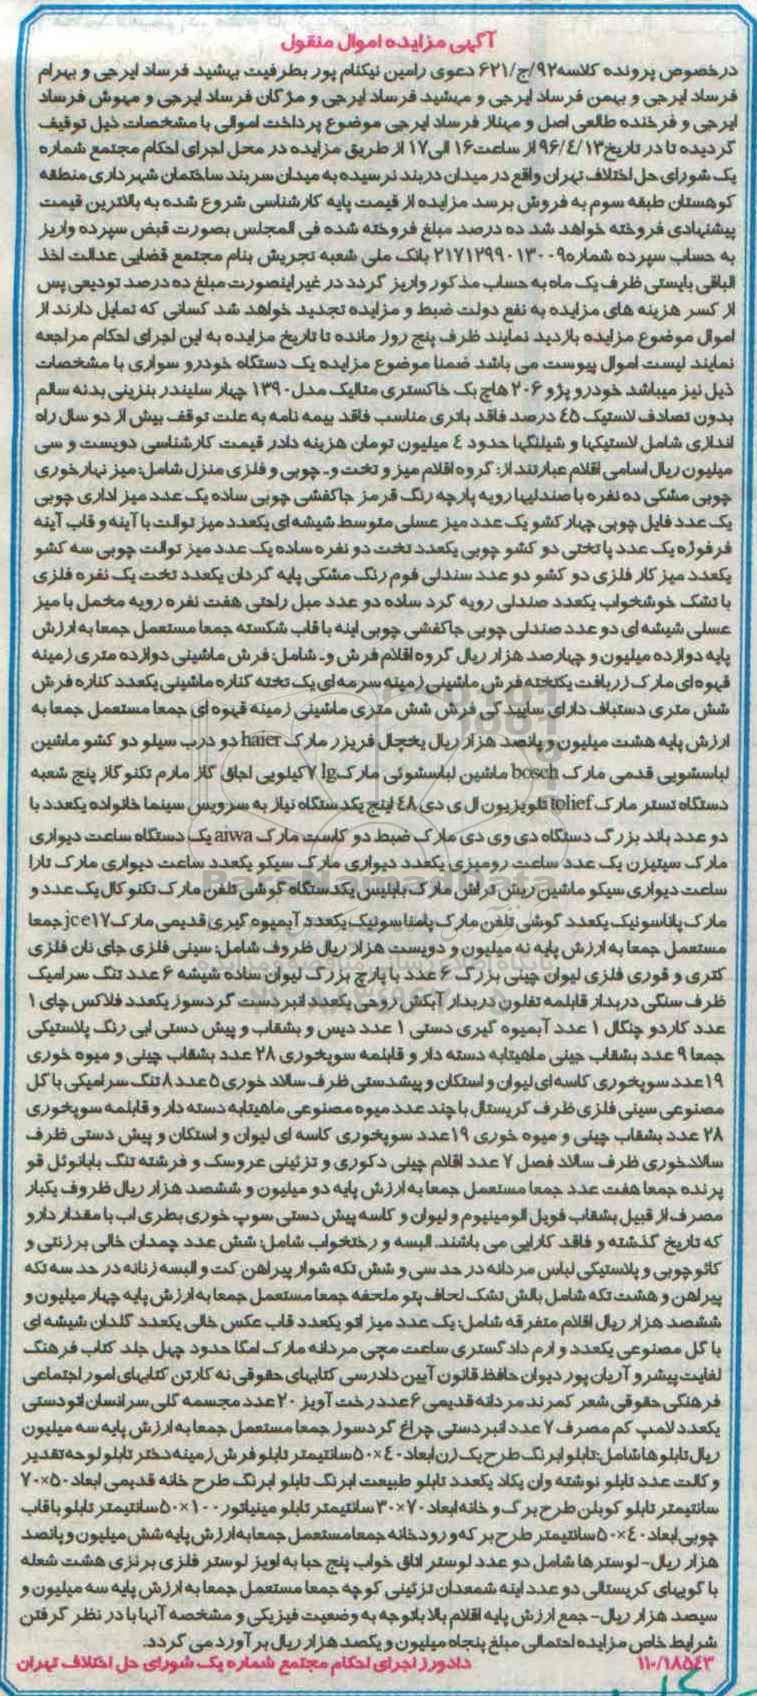 آگهی مزایده اموال منقول
درخصوص پرونده کلاسه۹۲/ج/۶۲۱ دعوی رامین نیکنام پور بطرفیت بهشید فرساد ایرجی و بهرام
فرساد ایرجی و بهمن فرساد ایرجی و مهشید فرساد ایرجی و مژگان فرساد ایرجی و مهوش فرساد
ایرجی و فرخنده طالعی اصل و مهناز فرساد ایرجی موضوع پرداخت اموالی با مشخصات ذیل توقیف
گردیده تا در تاریخ۹۶/٤/۱۳ از ساعت۱۶ الی۱۷ از طریق مزایده در محل اجرای احکام مجتمع شماره
یک شورای حل اختلاف تهران واقع در میدان دربند نرسیده به میدان سربند ساختمان شهرداری منطقه
کوهستان طبقه سوم به فروش برسد مزایده از قیمت پایه کارشناسی شروع شده به بالاترین قیمت
پیشنهادی فروخته خواهد شد ده درصد مبلغ فروخته شده فی المجلس بصورت قبض سپرده واریز
به حساب سپرده شماره۲۱۷۱۲۹۹۰۱۳۰۰۹ بانک ملی شعبه تجریش بنام مجتمع قضایی عدالت اخذ
الباقی بایستی ظرف یک ماه به حساب مذکور واریز گردد در غیراینصورت مبلغ ده درصد تودیعی پس
از کسر هزینه های مزایده به نفع دولت ضبط و مزایده تجدید خواهد شد کسانی که تمایل دارند از
اموال موضوع مزایده بازدید نمایند ظرف پنج روز مانده تا تاریخ مزایده به این اجرای احکام مراجعه
نمایند لیست اموال پیوست می باشد ضمنا موضوع مزایده یک دستگاه خودرو سواری با مشخصات
ذیل نیز میباشد خودرو پژو ۲۰۶ هاچ بک خاکستری متالیک مدل۱۳۹۰ چهار سلیندر بنزینی بدنه سالم
بدون تصادف لاستیک ٤۵ درصد فاقد باتری مناسب فاقد بیمه نامه به علت توقف بیش از دو سال راه
اندازی شامل لاستیکها و شیلنگها حدود ٤ میلیون تومان هزینه دادر قیمت کارشناسی دویست و سی
میلیون ریال اسامی اقلام عبارتند از: گروه اقلام میز و تخت و.. چوبی و فلزی منزل شامل: میز نهارخوری
چوبی مشکی ده نفره با صندلیها رویه پارچه رنگ قرمز جاکفشی چوبی ساده یک عدد میز اداری چوبی
یک عدد فایل چوبی چهار کشو یک عدد میز عسلی متوسط شیشه ای یکعدد میز توالت با آینه و قاب آینه
فرفوژه یک عدد پا تختی دو کشو چوبی یکعدد تخت دو نفره ساده یک عدد میز توالت چوبی سه کشو
یکعدد میز کار فلزی دو کشو دو عدد سندلی فوم رنگ مشکی پایه گردان یکعدد تخت یک نفره فلزی
با تشک خوشخواب یکعدد صندلی رویه گرد ساده دو عدد مبل راحتی هفت نفره رویه مخمل با میز
عسلی شیشه ای دو عدد صندلی چوبی جاکفشی چوبی اینه با قاب شکسته جمعا مستعمل جمعا به ارزش
پایه دوازده میلیون و چهارصد هزار ریال گروه اقلام فرش و.. شامل: فرش ماشینی دوازده متری زمینه
قهوه ای مارک زربافت یکتخته فرش ماشینی زمینه سرمه ای یک تخته کناره ماشینی یکعدد کناره فرش
شش متری دستباف دارای ساییدگی فرش شش متری ماشینی زمینه قهوه ای جمعا مستعمل جمعا به
ارزش پایه هشت میلیون و پانصد هزار ریال یخچال فریزر مارک haier دو درب سیلو دو کشو ماشین
لباسشویی قدمی مارک bosch ماشین لباسشوئی مارک lg ۷کیلویی اجاق گاز مارم تکنوگاز پنج شعبه
دستگاه تستر مارک tolief تلویزیون ال ی دی ٤۸ اینچ یکدستگاه نیاز به سرویس سینما خانواده یکعدد با
دو عدد باند بزرگ دستگاه دی وی دی مارک ضبط دو کاست مارک aiwa یک دستگاه ساعت دیواری
مارک سیتیزن یک عدد ساعت رومیزی یکعدد دیواری مارک سیکو یکعدد ساعت دیواری مارک تارا
ساعت دیواری سیکو ماشین ریش تراش مارک بابلیس یکدستگاه گوشی تلفن مارک تکنو کال یک عدد و
مارک پاناسونیک یکعدد گوشی تلفن مارک پاسناسونیک یکعدد آبمیوه گیری قدیمی مارک jce۱۷ جمعا
مستعمل جمعا به ارزش پایه نه میلیون و دویست هزار ریال ظروف شامل: سینی فلزی جای نان فلزی
کتری و قوری فلزی لیوان چینی بزرگ ۶ عدد با پارچ بزرگ لیوان ساده شیشه ۶ عدد تنگ سرامیک
ظرف سنگی دربدار قابلمه تفلون دربدار آبکش روحی یکعدد انبردست گردسوز یکعدد فلاکس چای ۱
عدد کاردو چنگال ۱ عدد آبمیوه گیری دستی ۱ عدد دیس و بشقاب و پیش دستی ابی رنگ پلاستیکی
جمعا ۹ عدد بشقاب چینی ماهیتابه دسته دار و قابلمه سوپخوری ۲۸ عدد بشقاب چینی و میوه خوری
۱۹عدد سوپخوری کاسه ای لیوان و استکان و پیشدستی ظرف سالاد خوری ۵ عدد ۸ تنگ سرامیکی با گل
مصنوعی سینی فلزی ظرف کریستال با چند عدد میوه مصنوعی ماهیتابه دسته دار و قابلمه سوپخوری
۲۸ عدد بشقاب چینی و میوه خوری ۱۹عدد سوپخوری کاسه ای لیوان و استکان و پیش دستی ظرف
سالادخوری ظرف سالاد فصل ۷ عدد اقلام چینی دکوری و تزئینی عروسک و فرشته تنگ بابانوئل قو
پرنده جمعا هفت عدد جمعا مستعمل جمعا به ارزش پایه دو میلیون و ششصد هزار ریال ظروف یکبار
مصرف از قبیل بشقاب فویل الومینیوم و لیوان و کاسه پیش دستی سوپ خوری بطری اب با مقدار دارو
که تاریخ گذشته و فاقد کارایی می باشند. البسه و رختخواب شامل: شش عدد چمدان خالی برزنتی و
کائوچوبی و پلاستیکی لباس مردانه در حد سی و شش تکه شوار پیراهن کت و البسه زنانه در حد سه تکه
پیراهن و هشت تکه شامل بالش تشک لحاف پتو ملحفه جمعا مستعمل جمعا به ارزش پایه چهار میلیون و
ششصد هزار ریال اقلام متفرقه شامل: یک عدد میز اتو یکعدد قاب عکس خالی یکعدد گلدان شیشه ای
با گل مصنوعی یکعدد و ارم دادگستری ساعت مچی مردانه مارک امگا حدود چهل جلد کتاب فرهنگ
لغایت پیشرو آریان پور دیوان حافظ قانون آیین دادرسی کتابهای حقوقی نه کارتن کتابهای امور اجتماعی
فرهنگی حقوقی شعر کمربند مردانه قدیمی ۶عدد رخت آویز ۲۰عدد مجسمه گلی سرانسان اتو دستی
یکعدد لامپ کم مصرف ۷ عدد انبردستی چراغ گردسوز جمعا مستعمل جمعا به ارزش پایه سه میلیون
ریال تابلو ها شامل: تابلو ابرنگ طرح یک زن ابعاد ۴۰×۵۰ سانتیمتر تابلو فرش زمینه دختر تابلو لوحه تقدیر
وکالت عدد تابلو نوشته وان یکاد یکعدد تابلو طبیعت ابرنگ تابلو ابرنگ طرح خانه قدیمی ابعاد ۵۰×۷۰
سانتیمتر تابلو کوبلن طرح برگ و خانه ابعاد ۷۰×۳۰ سانتیمتر تابلو مینیاتور ۱۰۰×۵۰ سانتیمتر تابلو با قاب
چوبی ابعاد ۴۰×۵۰ سانتیمتر طرح برکه و رودخانه جمعا مستعمل جمعا به ارزش پایه شش میلیون و پانصد
هزار ریال- لوسترها شامل دو عدد لوستر اتاق خواب پنج حبا به اویز لوستر فلزی برنزی هشت شعله
با گویهای کریستالی دو عدد اینه شمعدان تزئینی کوچه جمعا مستعمل جمعا به ارزش پایه سه میلیون و
سیصد هزار ریال- جمع ارزش پایه اقلام بالا باتوجه به وضعیت فیزیکی و مشخصه آنها با در نظر گرفتن
شرایط خاص مزایده احتمالی مبلغ پنجاه میلیون و یکصد هزار ریال برآورد می گردد.
۱۱۰/۱۸۵٤۳ دادورز اجرای احکام مجتمع شماره یک شورای حل اختلاف تهران